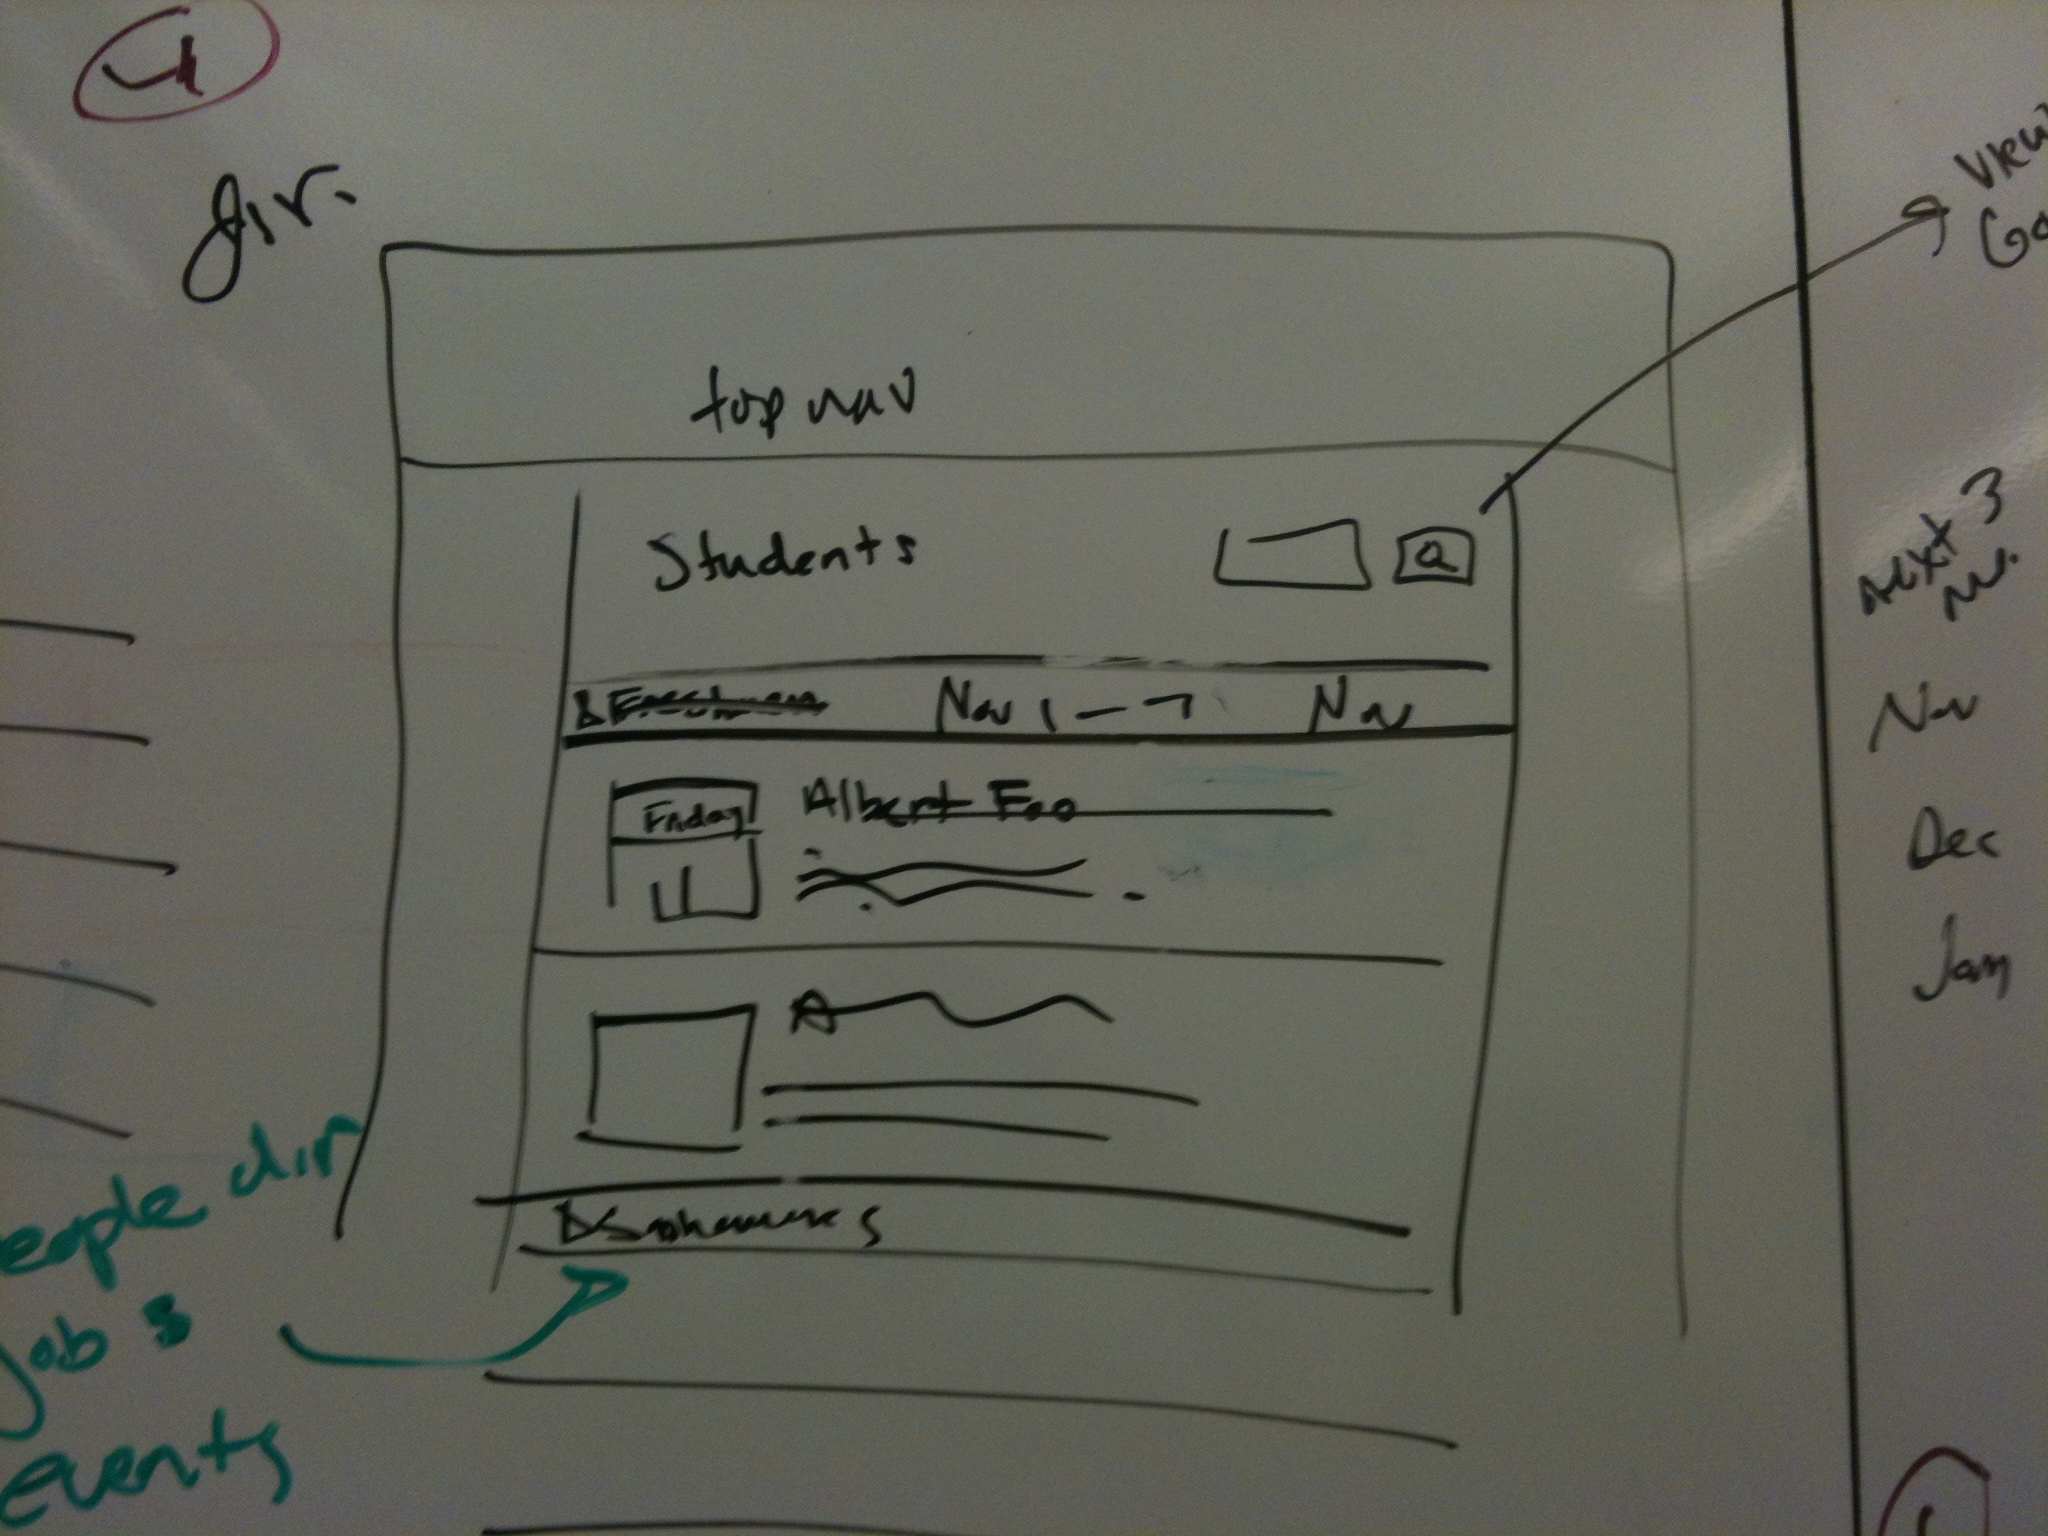 4
dir.
top nav
Students
Q
Freshmen Nov 1 - 7 Nov
Friday
11
Albert Foo
Sophomores
people dir
jobs
events
view
Next 3
Nov
Dec
Jan